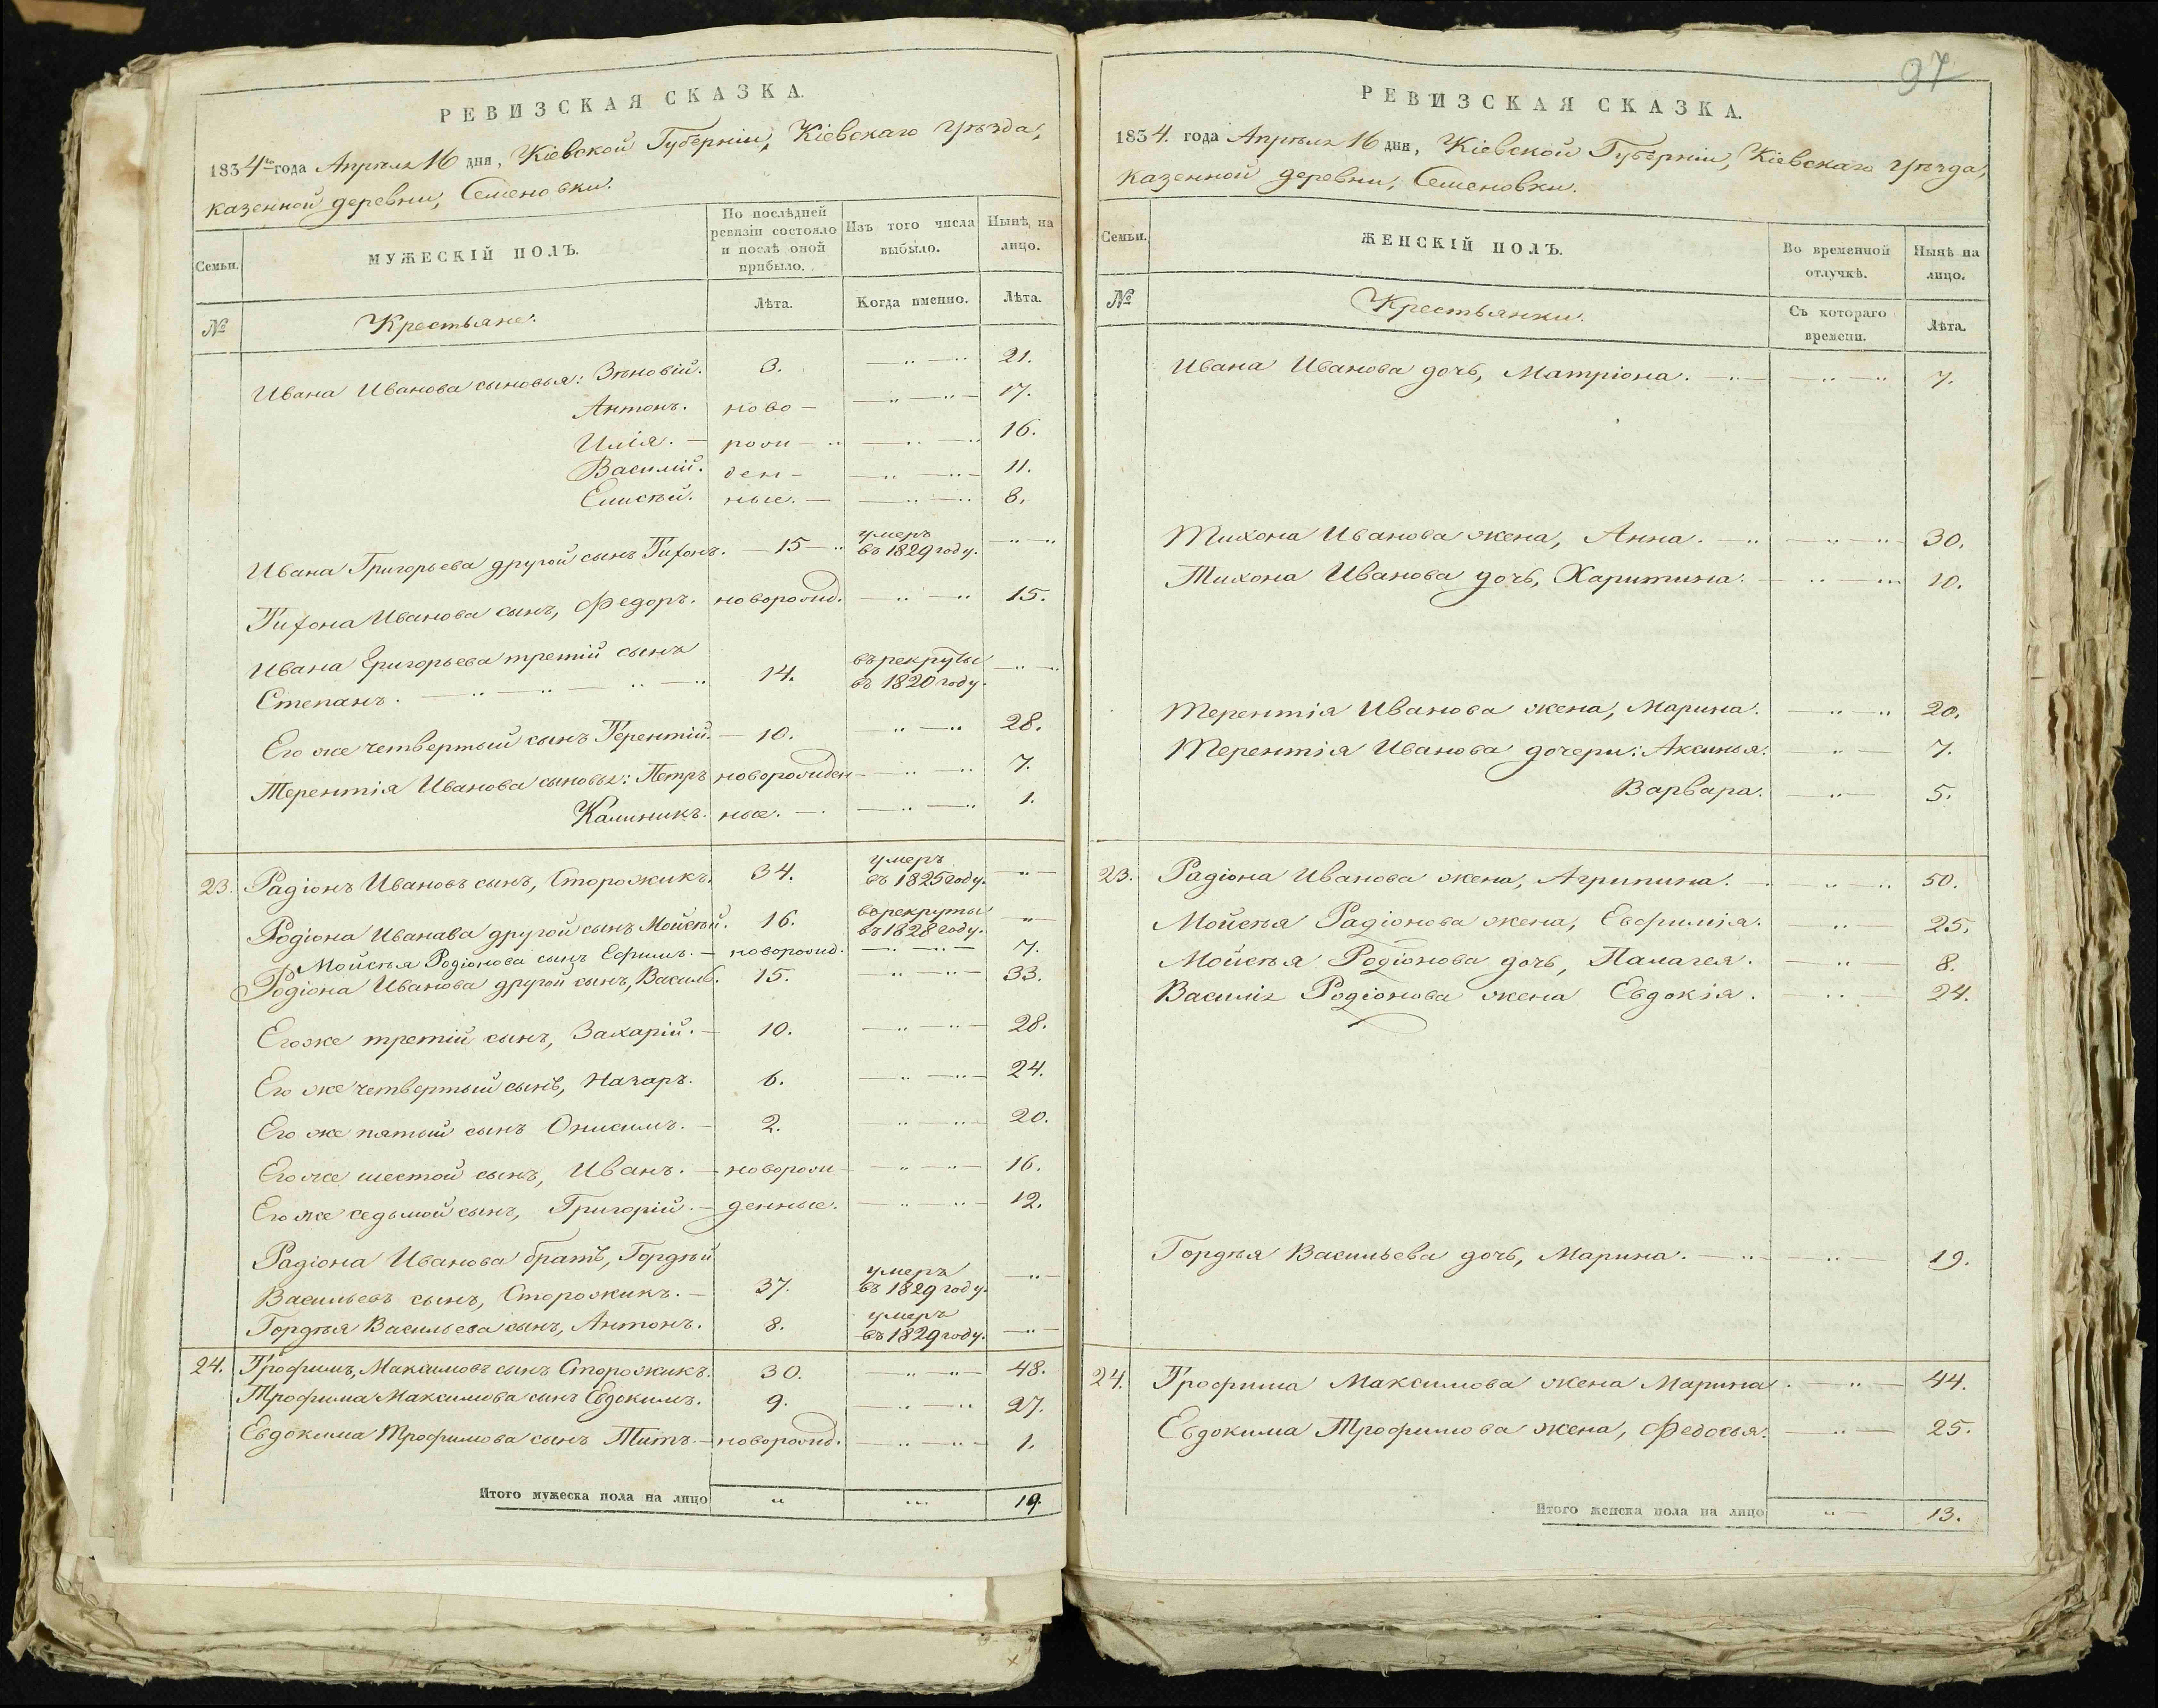 РЕВИЗСКАЯ СКАЗКА.
1834го года Апрѣля 16 дня, Кіевской Губерніи, Кіевскаго уѣзда,
казенной деревни, Семеновки.
Семьи.
МУЖЕСКІЙ ПОЛЪ.
По послѣдней ревизіи состояло и послѣ оной прибыло.
Изъ того числа выбыло.
Нынѣ на лицо.
№
Крестьяне.
Лѣта.
Когда именно.
Лѣта.
Ивана Иванова сыновья: Зѣновій. 3. — „ — „ 21.
Антонъ. ново — — „ — „ — 17.
Илія. — рож — „ — „ — „ 16.
Василій. ден — — „ — „ — 11.
Елисѣй. ные. — — „ — „ 8.
умеръ
Ивана Григорьева другой сынъ Тихонъ. — 15 — „ въ 1829 году. — „ — „
Тихона Иванова сынъ, Федоръ. новорожд. — „ — „ 15.
Ивана Григорьева третій сынъ
въ рекруты
Степанъ. — „ — „ — „ — „ 14. въ 1820 году. — „ — „
Его же четвертый сынъ Терентій. — 10. — „ — „ 28.
Терентія Иванова сыновья: Петръ новорожден — „ — „ 7.
Калиникъ. ные. — — „ — „ 1.
умеръ
23. Радіонъ Ивановъ сынъ, Сторожикъ. 34. въ 1825 году. — „ —
в рекруты
Родіона Иванава другой сынъ Мойсѣй. 16. въ 1828 году. — „ —
Мойсѣя Родіонова сынъ Ефимъ. — новорожд. — „ — „ — 7.
Родіона Иванова другой сынъ, Василь. 15. — „ — „ — 33.
Его же третій сынъ, Захарій. — 10. — „ — „ — 28.
Его же четвертый сынъ, Назаръ. 6. — „ — „ — 24.
Его же пятый сынъ Онисимъ. — 2. „ — „ — 20.
Его же шестой сынъ, Иванъ. — новорож — — „ — „ — 16.
Его же седьмой сынъ, Григорій. — денные. — „ — „ — 12.
Радіона Иванова братъ, Гордѣй
умеръ
Васильевъ сынъ, Сторожикъ. — 37. въ 1829 году. — „ —
умеръ
Гордѣя Васильева сынъ, Антонъ. 8. въ 1829 году. — „ —
24. Трофимъ, Максимовъ сынъ Сторожикъ. 30. — „ — „ — 48.
Трофима Максимова сынъ Евдокимъ. 9. — „ — „ 27.
Евдокима Трофимова сынъ Титъ. — новорожд. — „ — „ — 1.
Итого мужеска пола на лицо „ „ 19.
97
РЕВИЗСКАЯ СКАЗКА.
1834. года Апрѣля 16 дня, Кіевской Губерніи, Кіевскаго уѣзда,
казенной деревни, Семеновки.
Семьи.
ЖЕНСКІЙ ПОЛЪ.
Во временной отлучкѣ.
Нынѣ на лицо.
№
Крестьянки.
Съ котораго времени.
Лѣта.
Ивана Иванова дочь, Матріона. — „ — — „ — „ 7.
Тихона Иванова жена, Анна. — „ — „ — „ — 30.
Тихона Иванова дочь, Харитина. — „ — „ 10.
Терентія Иванова жена, Марина. — „ — „ 20.
Терентія Иванова дочери: Аксинья. — „ — 7.
Варвара. — „ — 5.
23. Радіона Иванова жена, Агрипина. — „ — „ 50.
Мойсѣя Радіонова жена, Евфимія. — „ — 25.
Мойсѣя Родіонова дочь, Палагея. — „ — 8.
Василія Родіонова жена Евдокія. — „ — 24.
Гордѣя Васильева дочь, Марина. — „ — „ — 19.
24. Трофима Максимова жена Марина. — „ — 44.
Евдокима Трофимова жена, Федосья. — „ — 25.
Итого женска пола на лицо „ — 13.